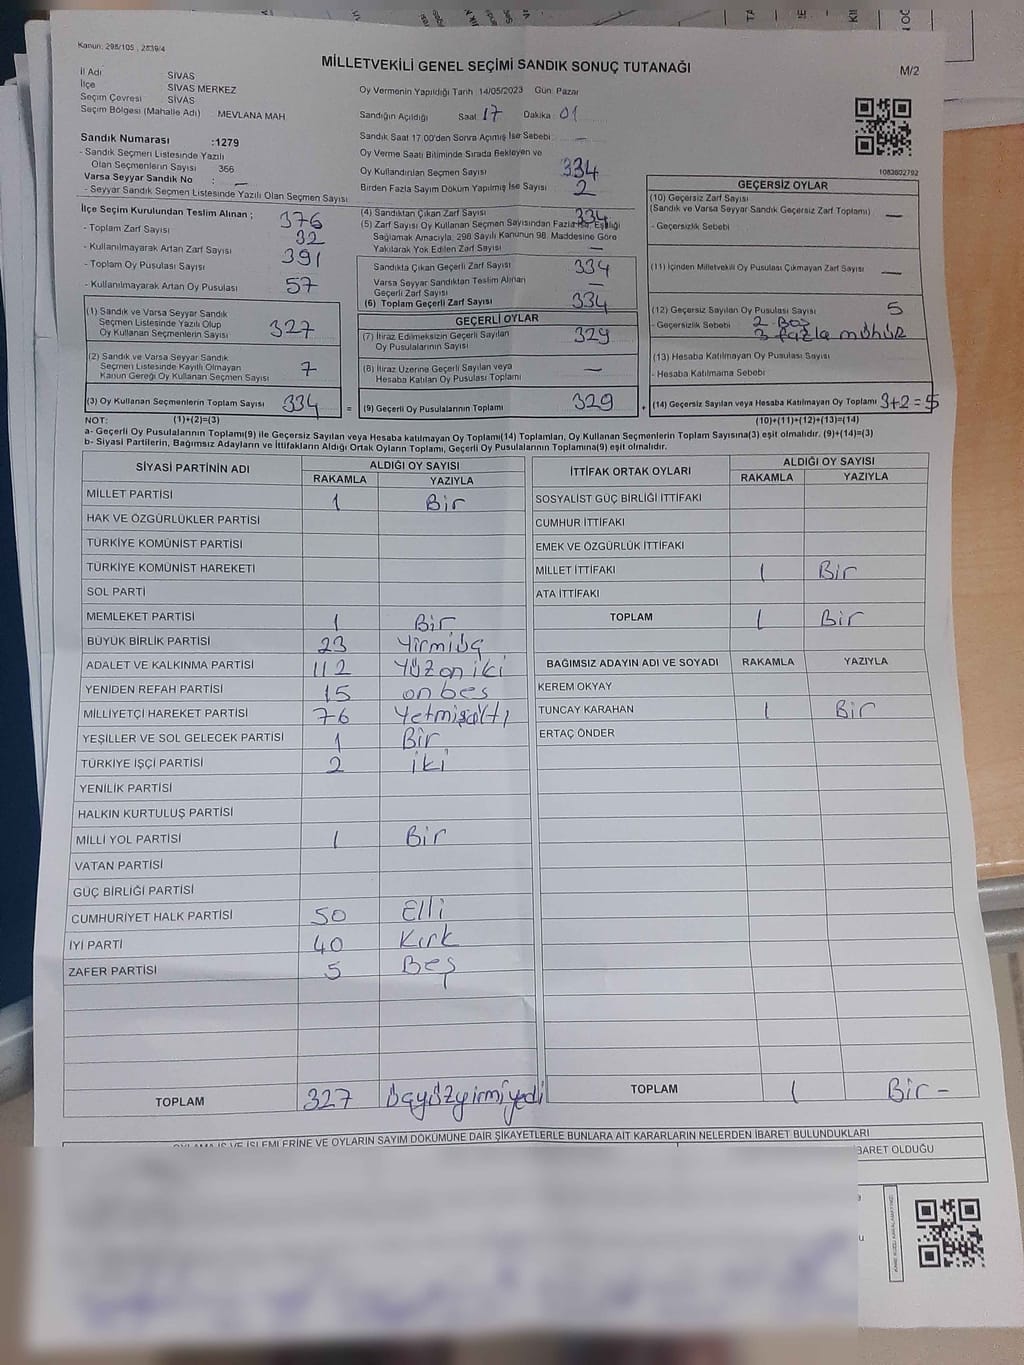 Kanun: 298/105 , 2839/4
MİLLETVEKİLİ GENEL SEÇİMİ SANDIK SONUÇ TUTANAĞI
M/2
İl Adı SİVAS
İlçe SİVAS MERKEZ
Seçim Çevresi SİVAS
Seçim Bölgesi (Mahalle Adı) MEVLANA MAH
Sandık Numarası :1279
- Sandık Seçmen Listesinde Yazılı
Olan Seçmenlerin Sayısı 366
Varsa Seyyar Sandık No : —
- Seyyar Sandık Seçmen Listesinde Yazılı Olan Seçmen Sayısı
Oy Vermenin Yapıldığı Tarih 14/05/2023 Gün: Pazar
Sandığın Açıldığı Saat 17 Dakika : 01
Sandık Saat 17:00'den Sonra Açımış İse Sebebi : —
Oy Verme Saati Bitiminde Sırada Bekleyen ve
Oy Kullandırılan Seçmen Sayısı 334
Birden Fazla Sayım Döküm Yapılmış İse Sayısı 2
1083602792
İlçe Seçim Kurulundan Teslim Alınan ;
- Toplam Zarf Sayısı 376
- Kullanılmayarak Artan Zarf Sayısı 32
- Toplam Oy Pusulası Sayısı 391
- Kullanılmayarak Artan Oy Pusulası 57
(1) Sandık ve Varsa Seyyar Sandık
Seçmen Listesinde Yazılı Olup
Oy Kullanan Seçmenlerin Sayısı 327
(2) Sandık ve Varsa Seyyar Sandık
Seçmen Listesinde Kayıtlı Olmayan
Kanun Gereği Oy Kullanan Seçmen Sayısı 7
(3) Oy Kullanan Seçmenlerin Toplam Sayısı 334 =
(4) Sandıktan Çıkan Zarf Sayısı 334
(5) Zarf Sayısı Oy Kullanan Seçmen Sayısından Fazla İse, Eşitliği
Sağlamak Amacıyla, 298 Sayılı Kanunun 98. Maddesine Göre
Yakılarak Yok Edilen Zarf Sayısı —
Sandıkta Çıkan Geçerli Zarf Sayısı 334
Varsa Seyyar Sandıktan Teslim Alınan
Geçerli Zarf Sayısı —
(6) Toplam Geçerli Zarf Sayısı 334
GEÇERLİ OYLAR
(7) İtiraz Edilmeksizin Geçerli Sayılan
Oy Pusulalarının Sayısı 329
(8) İtiraz Üzerine Geçerli Sayılan veya
Hesaba Katılan Oy Pusulası Toplamı —
(9) Geçerli Oy Pusulalarının Toplamı 329 +
GEÇERSİZ OYLAR
(10) Geçersiz Zarf Sayısı
(Sandık ve Varsa Seyyar Sandık Geçersiz Zarf Toplamı) —
- Geçersizlik Sebebi
(11) İçinden Milletvekili Oy Pusulası Çıkmayan Zarf Sayısı —
(12) Geçersiz Sayılan Oy Pusulası Sayısı 5
- Geçersizlik Sebebi : 2 Boş
3 fazla mühür
(13) Hesaba Katılmayan Oy Pusulası Sayısı
- Hesaba Katılmama Sebebi
(14) Geçersiz Sayılan veya Hesaba Katılmayan Oy Toplamı 3+2=5
NOT: (1)+(2)=(3) (10)+(11)+(12)+(13)=(14)
a- Geçerli Oy Pusulalarının Toplamı(9) ile Geçersiz Sayılan veya Hesaba katılmayan Oy Toplamı(14) Toplamları, Oy Kullanan Seçmenlerin Toplam Sayısına(3) eşit olmalıdır. (9)+(14)=(3)
b- Siyasi Partilerin, Bağımsız Adayların ve İttifakların Aldığı Ortak Oyların Toplamı, Geçerli Oy Pusulalarının Toplamına(9) eşit olmalıdır.
SİYASİ PARTİNİN ADI ALDIĞI OY SAYISI
RAKAMLA YAZIYLA
MİLLET PARTİSİ 1 Bir
HAK VE ÖZGÜRLÜKLER PARTİSİ
TÜRKİYE KOMÜNİST PARTİSİ
TÜRKİYE KOMÜNİST HAREKETİ
SOL PARTİ
MEMLEKET PARTİSİ 1 Bir
BÜYÜK BİRLİK PARTİSİ 23 Yirmiüç
ADALET VE KALKINMA PARTİSİ 112 Yüzoniki
YENİDEN REFAH PARTİSİ 15 onbeş
MİLLİYETÇİ HAREKET PARTİSİ 76 Yetmişaltı
YEŞİLLER VE SOL GELECEK PARTİSİ 1 Bir
TÜRKİYE İŞÇİ PARTİSİ 2 iki
YENİLİK PARTİSİ
HALKIN KURTULUŞ PARTİSİ
MİLLİ YOL PARTİSİ 1 Bir
VATAN PARTİSİ
GÜÇ BİRLİĞİ PARTİSİ
CUMHURİYET HALK PARTİSİ 50 Elli
İYİ PARTİ 40 Kırk
ZAFER PARTİSİ 5 Beş
TOPLAM 327 üçyüzyirmiyedi
İTTİFAK ORTAK OYLARI ALDIĞI OY SAYISI
RAKAMLA YAZIYLA
SOSYALİST GÜÇ BİRLİĞİ İTTİFAKI
CUMHUR İTTİFAKI
EMEK VE ÖZGÜRLÜK İTTİFAKI
MİLLET İTTİFAKI 1 Bir
ATA İTTİFAKI
TOPLAM 1 Bir
BAĞIMSIZ ADAYIN ADI VE SOYADI RAKAMLA YAZIYLA
KEREM OKYAY
TUNCAY KARAHAN 1 Bir
ERTAÇ ÖNDER
TOPLAM 1 Bir -
OYLAMA İŞ VE İŞLEMLERİNE VE OYLARIN SAYIM DÖKÜMÜNE DAİR ŞİKAYETLERLE BUNLARA AİT KARARLARIN NELERDEN İBARET BULUNDUKLARI
BARET OLDUĞU